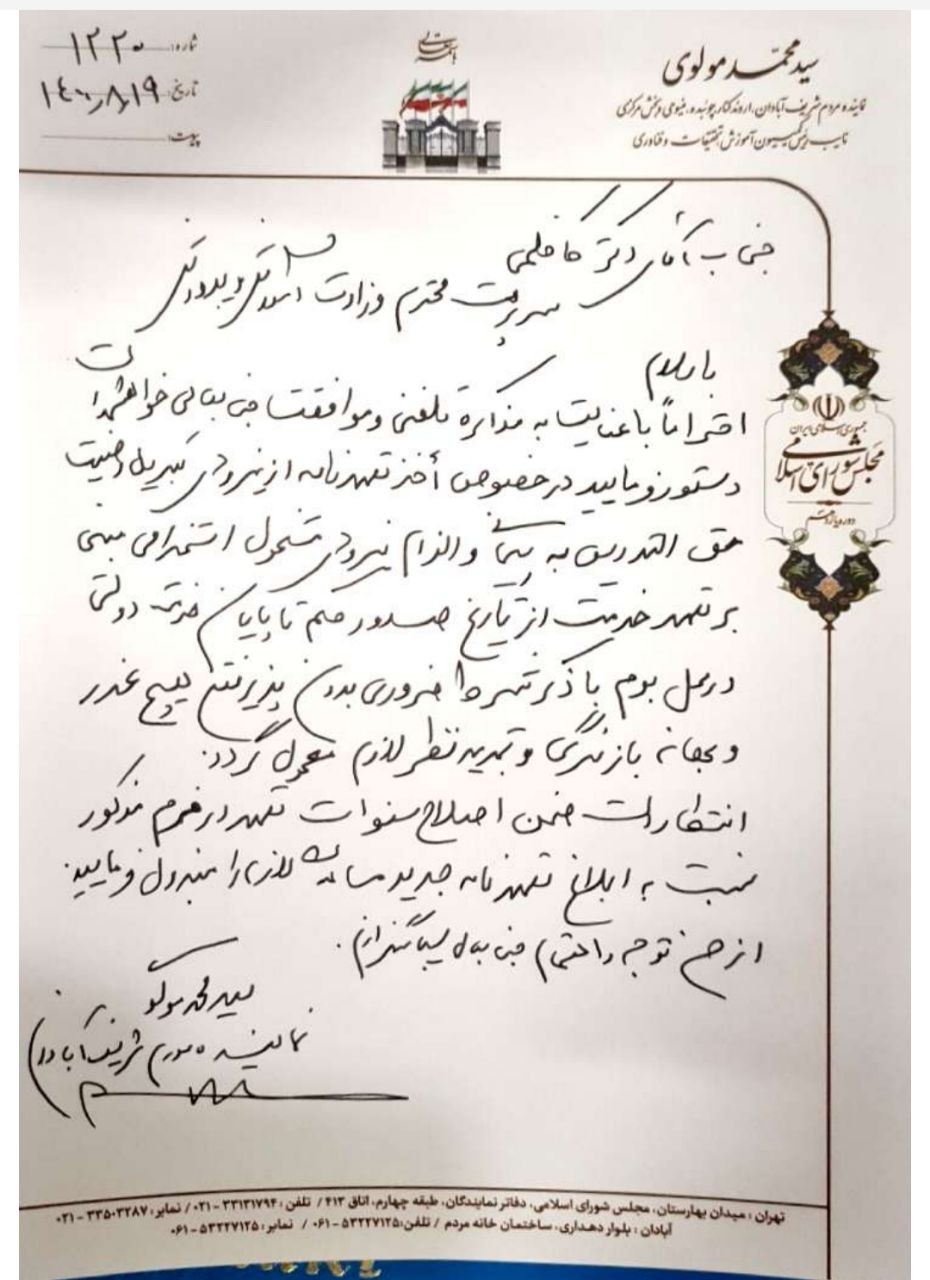 سید محمد مولوی
نماینده مردم شریف آبادان، اروندکنار، چوئبده، مینوحی و بخش مرکزی
نایب رئیس کمیسیون آموزش، تحقیقات و فناوری
باسمه تعالی
شماره: ۱۲۲۰
تاریخ: ۱۴۰۰/۸/۱۹
پیوست:
جناب آقای دکتر کاظمی
سرپرست محترم وزارت آموزش و پرورش
با سلام
احتراماً با عنایت به مذاکره تلفنی و موافقت جنابعالی خواهشمند است
دستور فرمایید در خصوص أخذ تعهدنامه از نیروهای تبدیل وضعیت
حق التدریس به پیمانی و الزام نیروهای مشمول استخدامی مبنی
بر تعهد خدمت از تاریخ صدور حکم تا پایان خدمت دولتی
در محل بوم با ذکر تبصره ها ضروری بدون پذیرفتن هیچ عذر
و بهانه بازنگری و تجدید نظر لازم معمول گردد.
انتظار است ضمن اصلاح سنوات تعهد در فرم مذکور
نسبت به ابلاغ تعهدنامه جدید مساعدت لازم را مبذول فرمایید
از حسن توجه و اهتمام جنابعالی سپاسگزارم.
سید محمد مولوی
نماینده مردم شریف آبادان
جمهوری اسلامی ایران
مجلس شورای اسلامی
دوره یازدهم
تهران : میدان بهارستان، مجلس شورای اسلامی، دفاتر نمایندگان، طبقه چهارم، اتاق ۴۱۳ / تلفن : ۳۳۱۳۱۷۹۴ - ۰۲۱ / نمابر : ۳۳۵۰۳۲۸۷ - ۰۲۱
آبادان : بلوار دهداری، ساختمان خانه مردم / تلفن: ۵۳۲۲۷۱۲۵ - ۰۶۱ / نمابر : ۵۳۲۲۷۱۲۵ - ۰۶۱